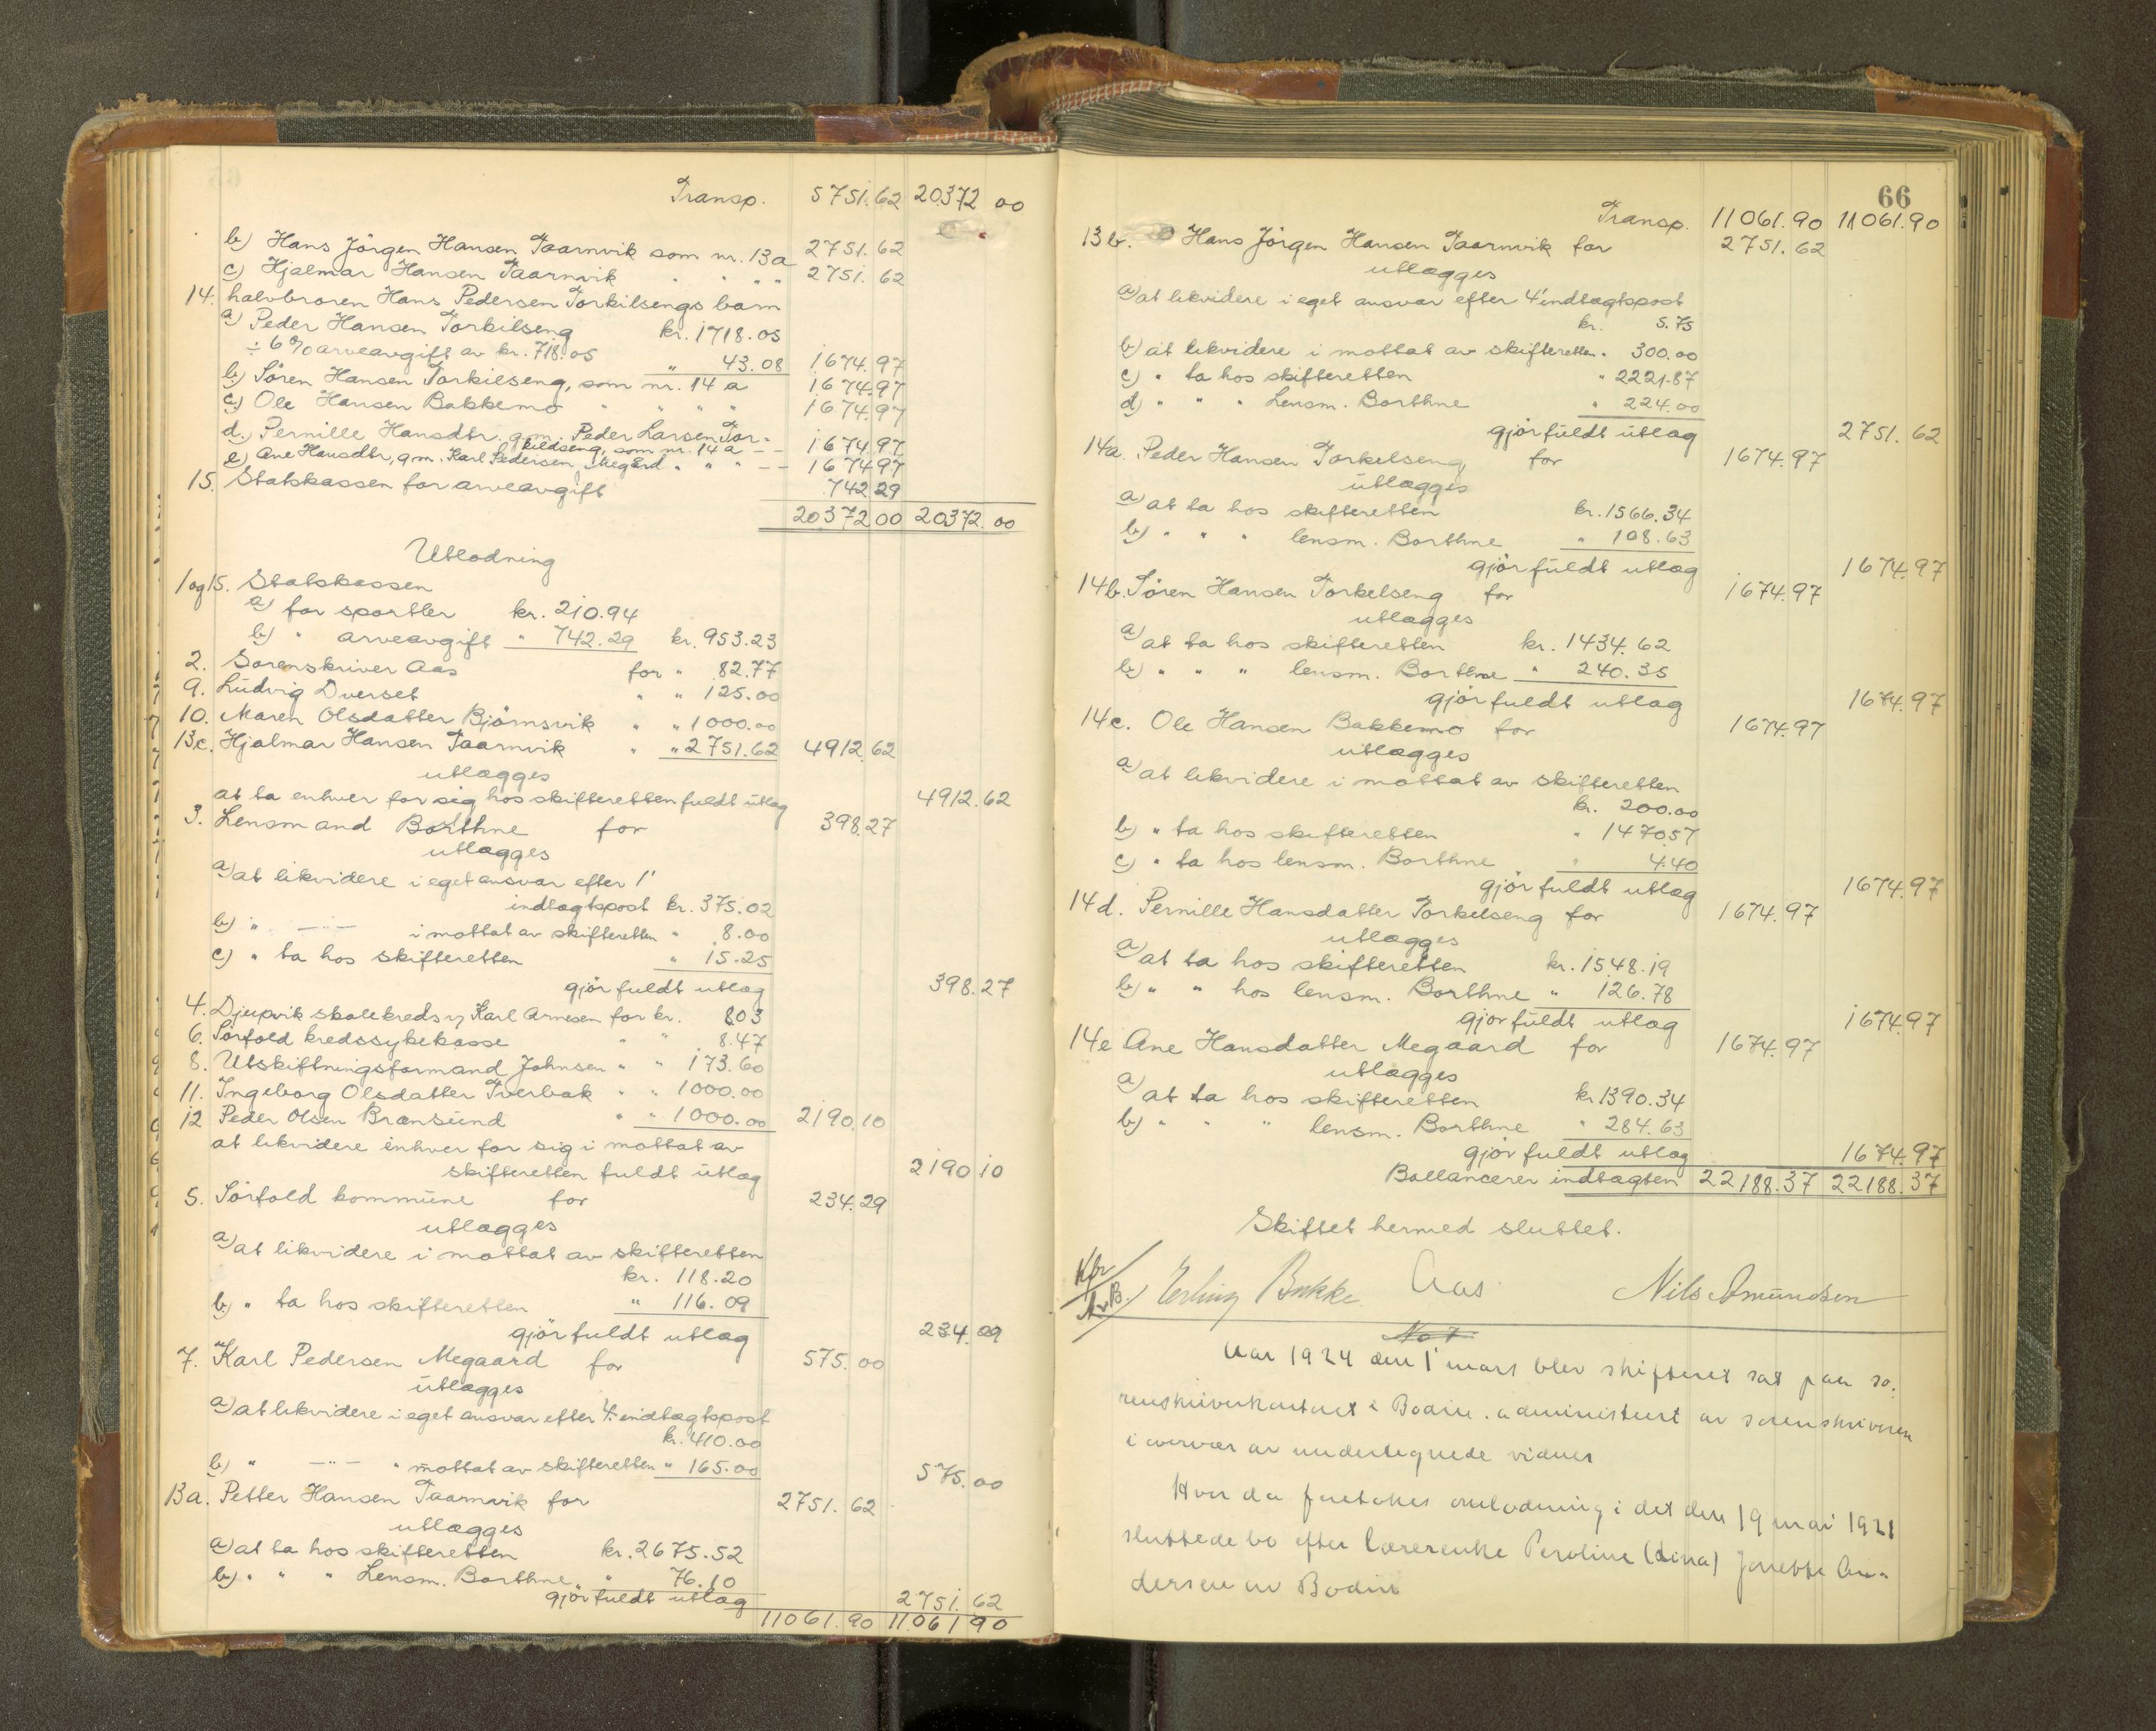 Transp. 5751.62 20372 00
b) Hans Jörgen Hansen Taarnvik som nr. 13a 2751.62
c) Hjalmar Hansen Taarnvik " " " 2751.62
14. halvbroren Hans Pedersen Torkilsengs barn
a) Peder Hansen Torkilseng kr. 1718.05
÷ 6% arveavgift av kr. 718.05 " 43.08 1674.97
b) Sören Hansen Torkilseng, som nr. 14 a 1674.97
c) Ole Hansen Bakkemo " " " " 1674.97
d.) Pernille Hansdtr. g.m. Peder Larsen Tor-
kildseng, som nr. 14 a -- 1674.97
e) Ane Hansdtr, g.m. Karl Pedersen Megård " " " -- 1674.97
15. Statskassen for arveavgift 742.29
20372 00 20372.00
Utlodning
1 og 15. Statskassen
a) for sportler kr. 210.94
b) " arveavgift " 742.29 kr. 953.23
2. Sorenskriver Aas for " 82.77
9. Ludvig Dverset " " 125.00
10. Maren Olsdatter Björnsvik " " 1000.00
13c. Hjalmar Hansen Taarnvik " " 2751.62 4912.62
utlægges
at ta enhver for sig hos skifteretten fuldt utlæg 4912.62
3. Lensmand Borthne for 398.27
utlægges
a) at likvidere i eget ansvar efter 1'
indtægtspost kr. 375.02
b) " —"— i mottat av skifteretten " 8.00
c) " ta hos skifteretten " 15.25
gjör fuldt utlæg 398.27
4. Djupvik skolekreds v/ Karl Arnesen for kr. 8.03
6. Sörfold kredssykekasse " " 8.47
8. Utskiftningsformand Johnsen " " 173.60
11. Ingeborg Olsdatter Tverbak " " 1000.00
12 Peder Olsen Brænsund " " 1000.00 2190.10
at likvidere enhver for sig i mottat av
skifteretten fuldt utlæg 2190 10
5. Sörfold kommune for 234.29
utlægges
a) at likvidere i mottat av skifteretten
kr. 118.20
b) " ta hos skifteretten " 116.09
gjör fuldt utlæg 234.29
7. Karl Pedersen Megaard for 575.00
utlægges
a) at likvidere i eget ansvar efter 4. indtægtspost
kr. 410.00
b) " —"— " mottat av skifteretten " 165.00
575.00
13a. Petter Hansen Taarnvik for 2751.62
utlægges
a) at ta hos skifteretten kr. 2675.52
b) " " " Lensm. Borthne " 76.10
gjör fuldt utlæg 2751.62
11061.90 11061 90
66
Transp. 11061.90 11061.90
13b. Hans Jörgen Hansen Taarnvik for 2751.62
utlægges
a) at likvidere i eget ansvar efter 4' indtægtspost
kr. 5.75
b) at likvidere i mottat av skifteretten " 300.00
c) " ta hos skifteretten " 2221.87
d) " " " Lensm. Borthne " 224.00
gjör fuldt utlæg 2751.62
14a. Peder Hansen Torkelseng for 1674.97
utlægges
a) at ta hos skifteretten kr. 1566.34
b) " " " lensm. Borthne " 108.63
gjör fuldt utlæg 1674.97
14b. Sören Hansen Torkelseng for 1674.97
utlægges
a) at ta hos skifteretten kr. 1434.62
b) " " " lensm. Borthne " 240.35
gjör fuldt utlæg 1674.97
14c. Ole Hansen Bakkemo for 1674.97
utlægges
a) at likvidere i mottat av skifteretten
kr. 200.00
b) " ta hos skifteretten " 1470.57
c) " ta hos lensm. Borthne " 4.40
gjör fuldt utlæg 1674.97
14d. Pernille Hansdatter Torkelseng for 1674.97
utlægges
a) at ta hos skifteretten kr. 1548.19
b) " " hos lensm. Borthne " 126.78
gjör fuldt utlæg 1674.97
14e Ane Hansdatter Megaard for 1674.97
utlægges
a) at ta hos skifteretten kr 1390.34
b) " " " lensm. Borthne " 284.63
gjör fuldt utlæg 1674.97
Ballancerer indtægten 22188.37 22188.37
Skiftet hermed sluttet.
Erling Bakke Aas Nils Amundsen
No 7.
Aar 1924 den 1' mars blev skifteret sat paa so-
renskriverkontoret i Bodin. administrert av sorenskriveren
i overvær av undertegnede vidner
Hvor da foretokes omlodning i det den 19 mai 1921
sluttede bo efter lærerenke Peroline (Lina) Jonette An-
dersen av Bodin